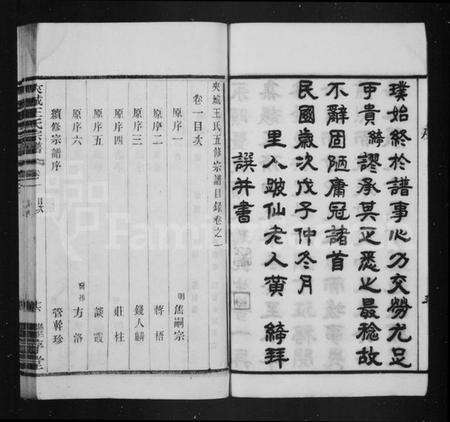 璞始終於譜事心力交勞尤足
可貴綺謬承其乏悉之最稔故
不辭固陋庸冠諸首
民國歲次戊子仲冬月
里人跛仙老人黃綺拜
譔並書
夾城王氏五修宗譜目錄卷之一
卷一目次
原序一 明 焦嗣宗
原序二 啓悟
原序三 錢人麟
原序四 莊柱
原序五 談霞
原序六 裔孫 方洛
續修宗譜序 管幹珍
夾城王氏宗譜